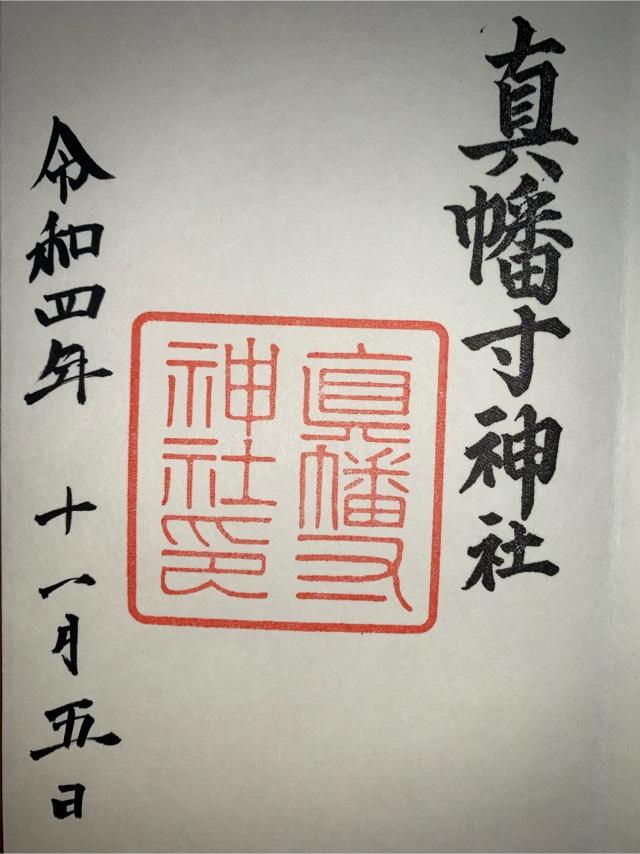 真幡寸神社
真幡寸
神社印
令和四年 十一月五日